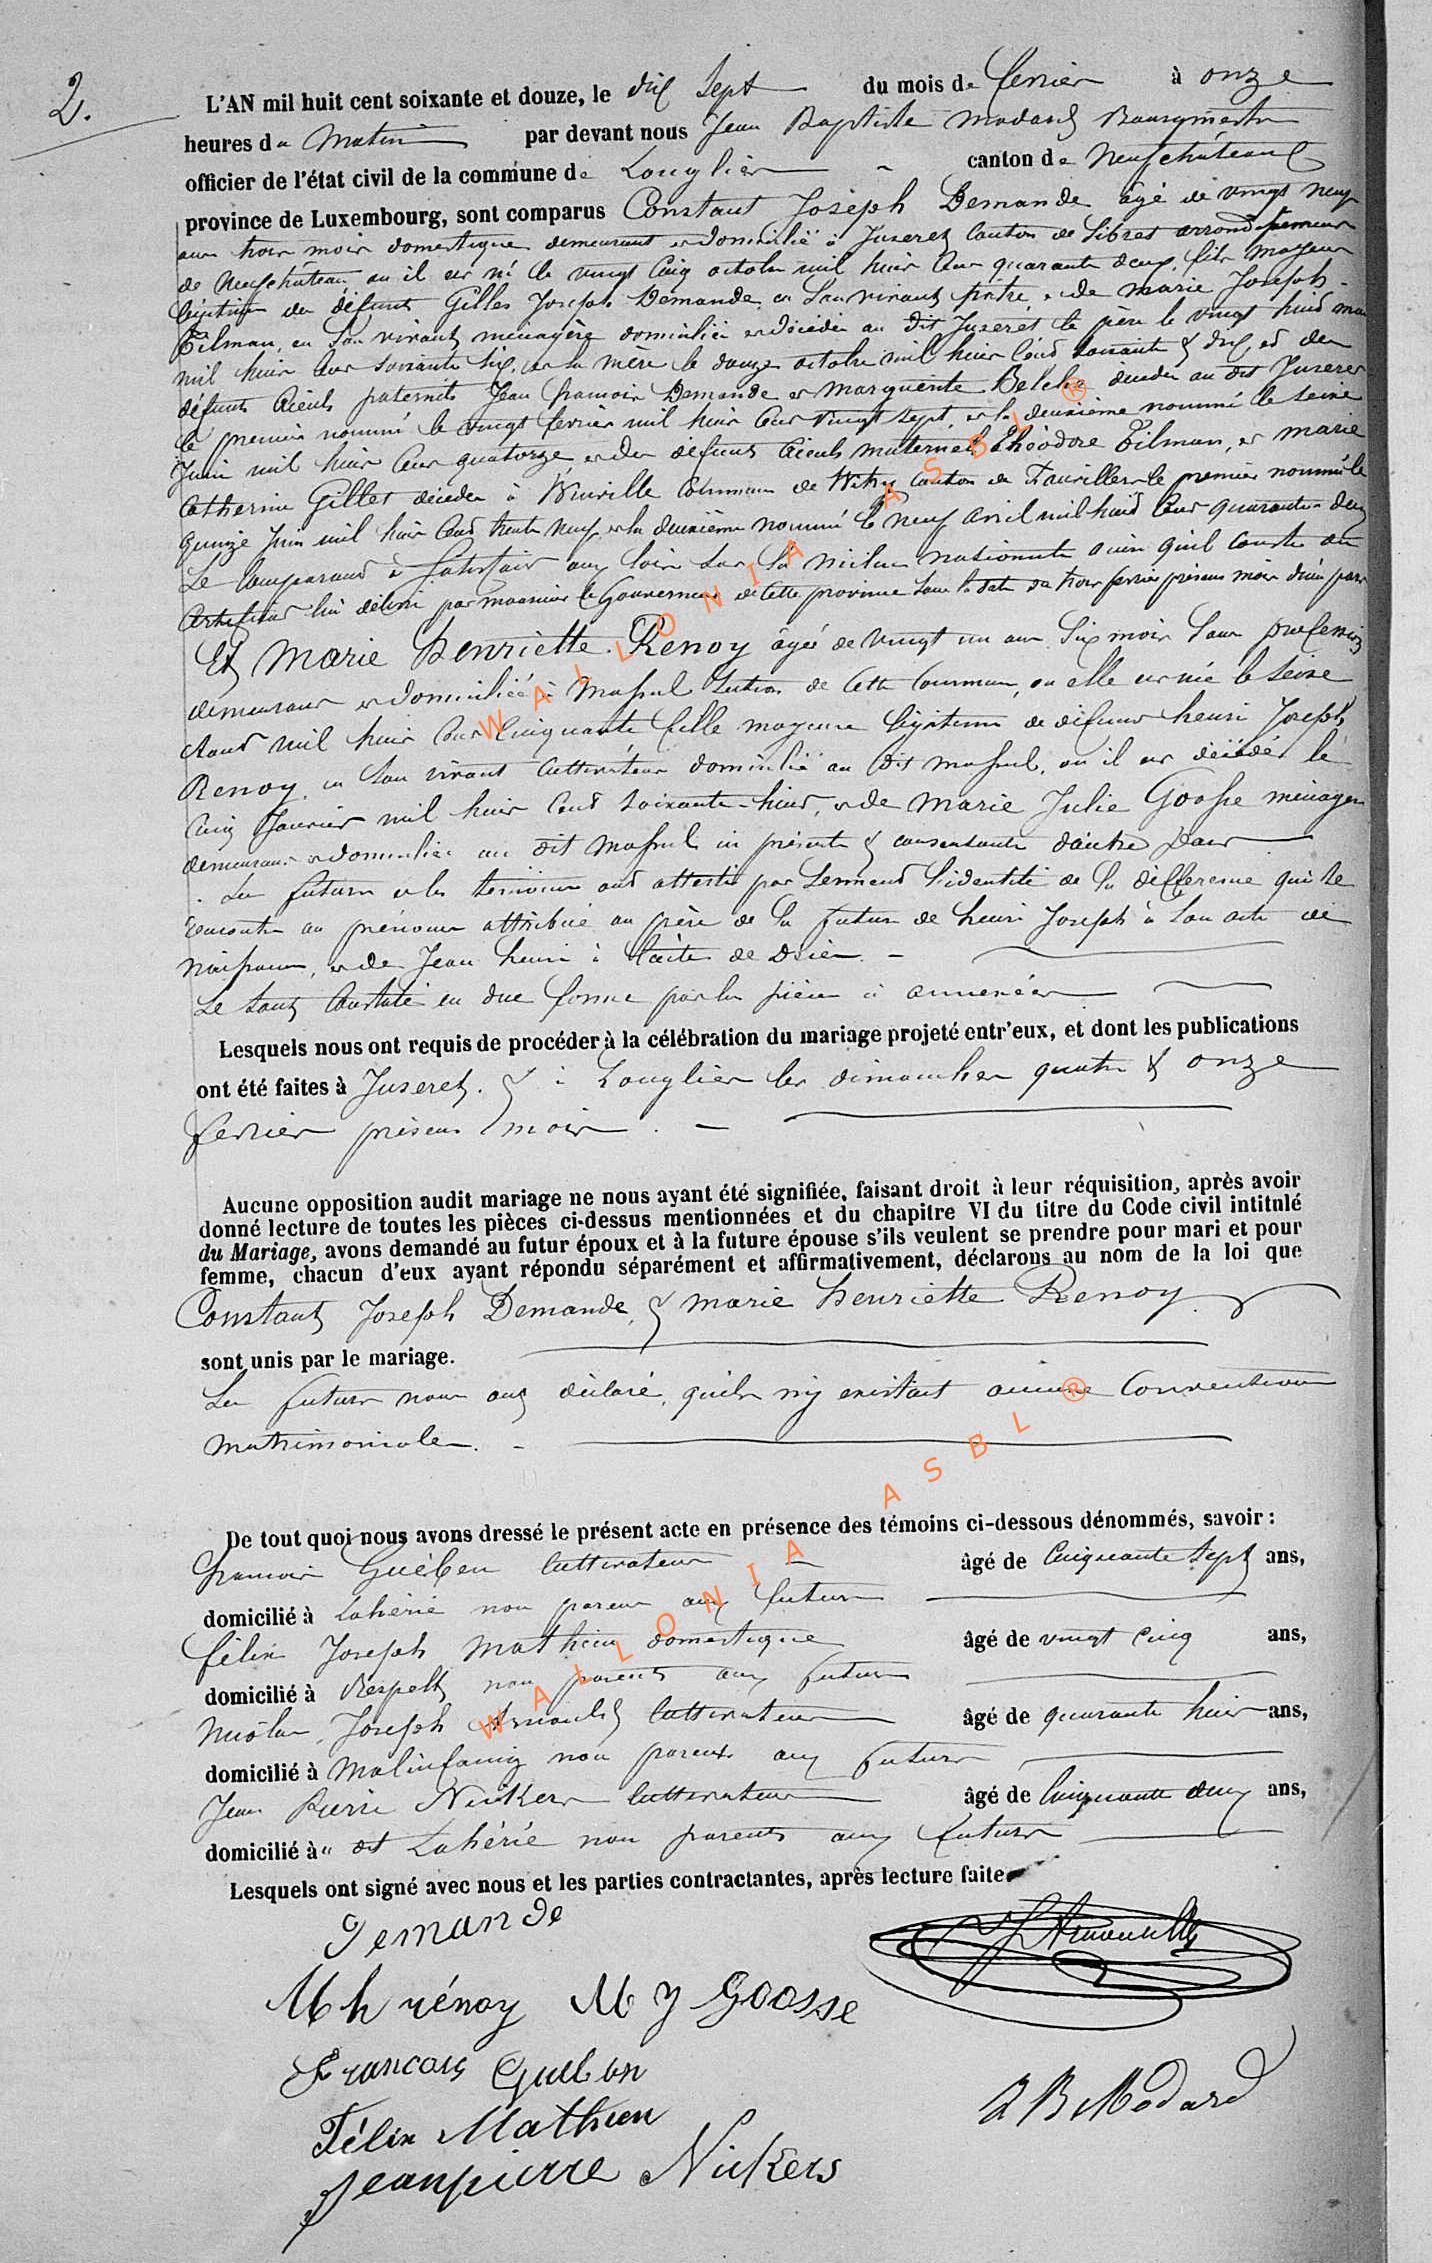 2.
L'AN mil huit cent soixante et douze, le dix Sept du mois de fevrier à onze
heures du Matin par devant nous Jean Baptiste Modard Bourgmestre
officier de l'état civil de la commune de Longlier canton de Neufchâteau
province de Luxembourg, sont comparus Constant Joseph Demande âgé de vingt neuf
ans trois mois domestique demeurant et domicilié à Juseret Canton de Sibret arrondissement
de Neufchâteau où il est né le vingt Cinq octobre mil huit Cent quarante deux, fils majeur
légitime des défunts Gilles Joseph Demande, en Son vivant et de Marie Joseph
Tilman, en Son vivant ménagère domiciliés et décédés au dit Juseret le père le vingt huit
mil huit Cent soixante Six, et la mère le douze octobre mil huit Cent soixante & dix, et des
défunts aieuls paternels Jean francois Demande et Marguerite décédés au dit Juseret
le premier nommé le vingt fevrier mil huit Cent vingt Sept, et la deuxième nommé le Seize
Juin mil huit Cent quatorze et des défunts aieuls maternels théodore Tilman, et marie
Catherine Gillet décédés à Winville Commune de Witry Canton de Fauvillers le premier nommé le
quinze Juin mil huit Cent trente neuf et la deuxième nommé le neuf avril mil huit Cent quarante deux
Le Comparant a Satisfait aux loix Sur la milice nationale ainsi qu'il Conste du
Certificat lui délivré par monsieur le Gouverneur de Cette province Sous la date du trois fevrier présent mois d'une part
Et Marie Henriette Renoy âgée de vingt un ans Six mois Sans profession
demeurant et domiciliée à Massul Section de Cette Commune, où elle est née le Seize
Aout mil huit Cent Cinquante fille majeure légitime de défunt henri Joseph
Renoy, en Son vivant Cultivateur domicilié au dit Massul, où il est décédé le
Cinq Janvier mil huit Cent Soixante-huit, et de Marie Julie Goosse ménagère
demeurant et domiciliée au dit Massul ici présente & consentante d'autre Part
Les futurs et les témoins ont attesté par Serment l'identité de la difference qui Se
rencontre au prénom attribué au père de la future de henri Joseph à Son acte de
naissance, et de Jean henri à l'acte de Décès. -
Le tout Constaté en due forme par les pièces ci annexées
Lesquels nous ont requis de procéder à la célébration du mariage projeté entr'eux, et dont les publications
ont été faites à Juseret. & à Longlier les dimanches quatre & onze
fevrier présent mois. -
Aucune opposition audit mariage ne nous ayant été signifiée, faisant droit à leur réquisition, après avoir
donné lecture de toutes les pièces ci-dessus mentionnées et du chapitre VI du titre du Code civil intitulé
du Mariage, avons demandé au futur époux et à la future épouse s'ils veulent se prendre pour mari et pour
femme, chacun d'eux ayant répondu séparément et affirmativement, déclarons au nom de la loi que
Constant Joseph Demande, & marie henriette Renoy.
sont unis par le mariage.
Les futurs nous ont déclaré, qu'ils n'y existait aucune Conventions
Matrimoniales. -
De tout quoi nous avons dressé le présent acte en présence des témoins ci-dessous dénommés, savoir :
francois Guében Cultivateur âgé de Cinquante Sept ans,
domicilié à Lahérie non parent aux futurs
félix Joseph Mathieu domestique âgé de vingt cinq ans,
domicilié à Respelt non parents aux futurs
Nicolas Joseph Arnould Cultivateur âgé de quarante huit ans,
domicilié à Molinfaing non parent aux futurs
Jean Pierre Nickers Cultivateur âgé de Cinquante deux ans,
domicilié à u dit Lahérie non parents aux futurs
Lesquels ont signé avec nous et les parties contractantes, après lecture faite.
Demande
Arnould
M h rénoy M J Goosse
Francois Gueben
J B Modard
Félix Mathieu
Jeanpierre Nickers
WALLONIA ASBL ®
WALLONIA ASBL ®